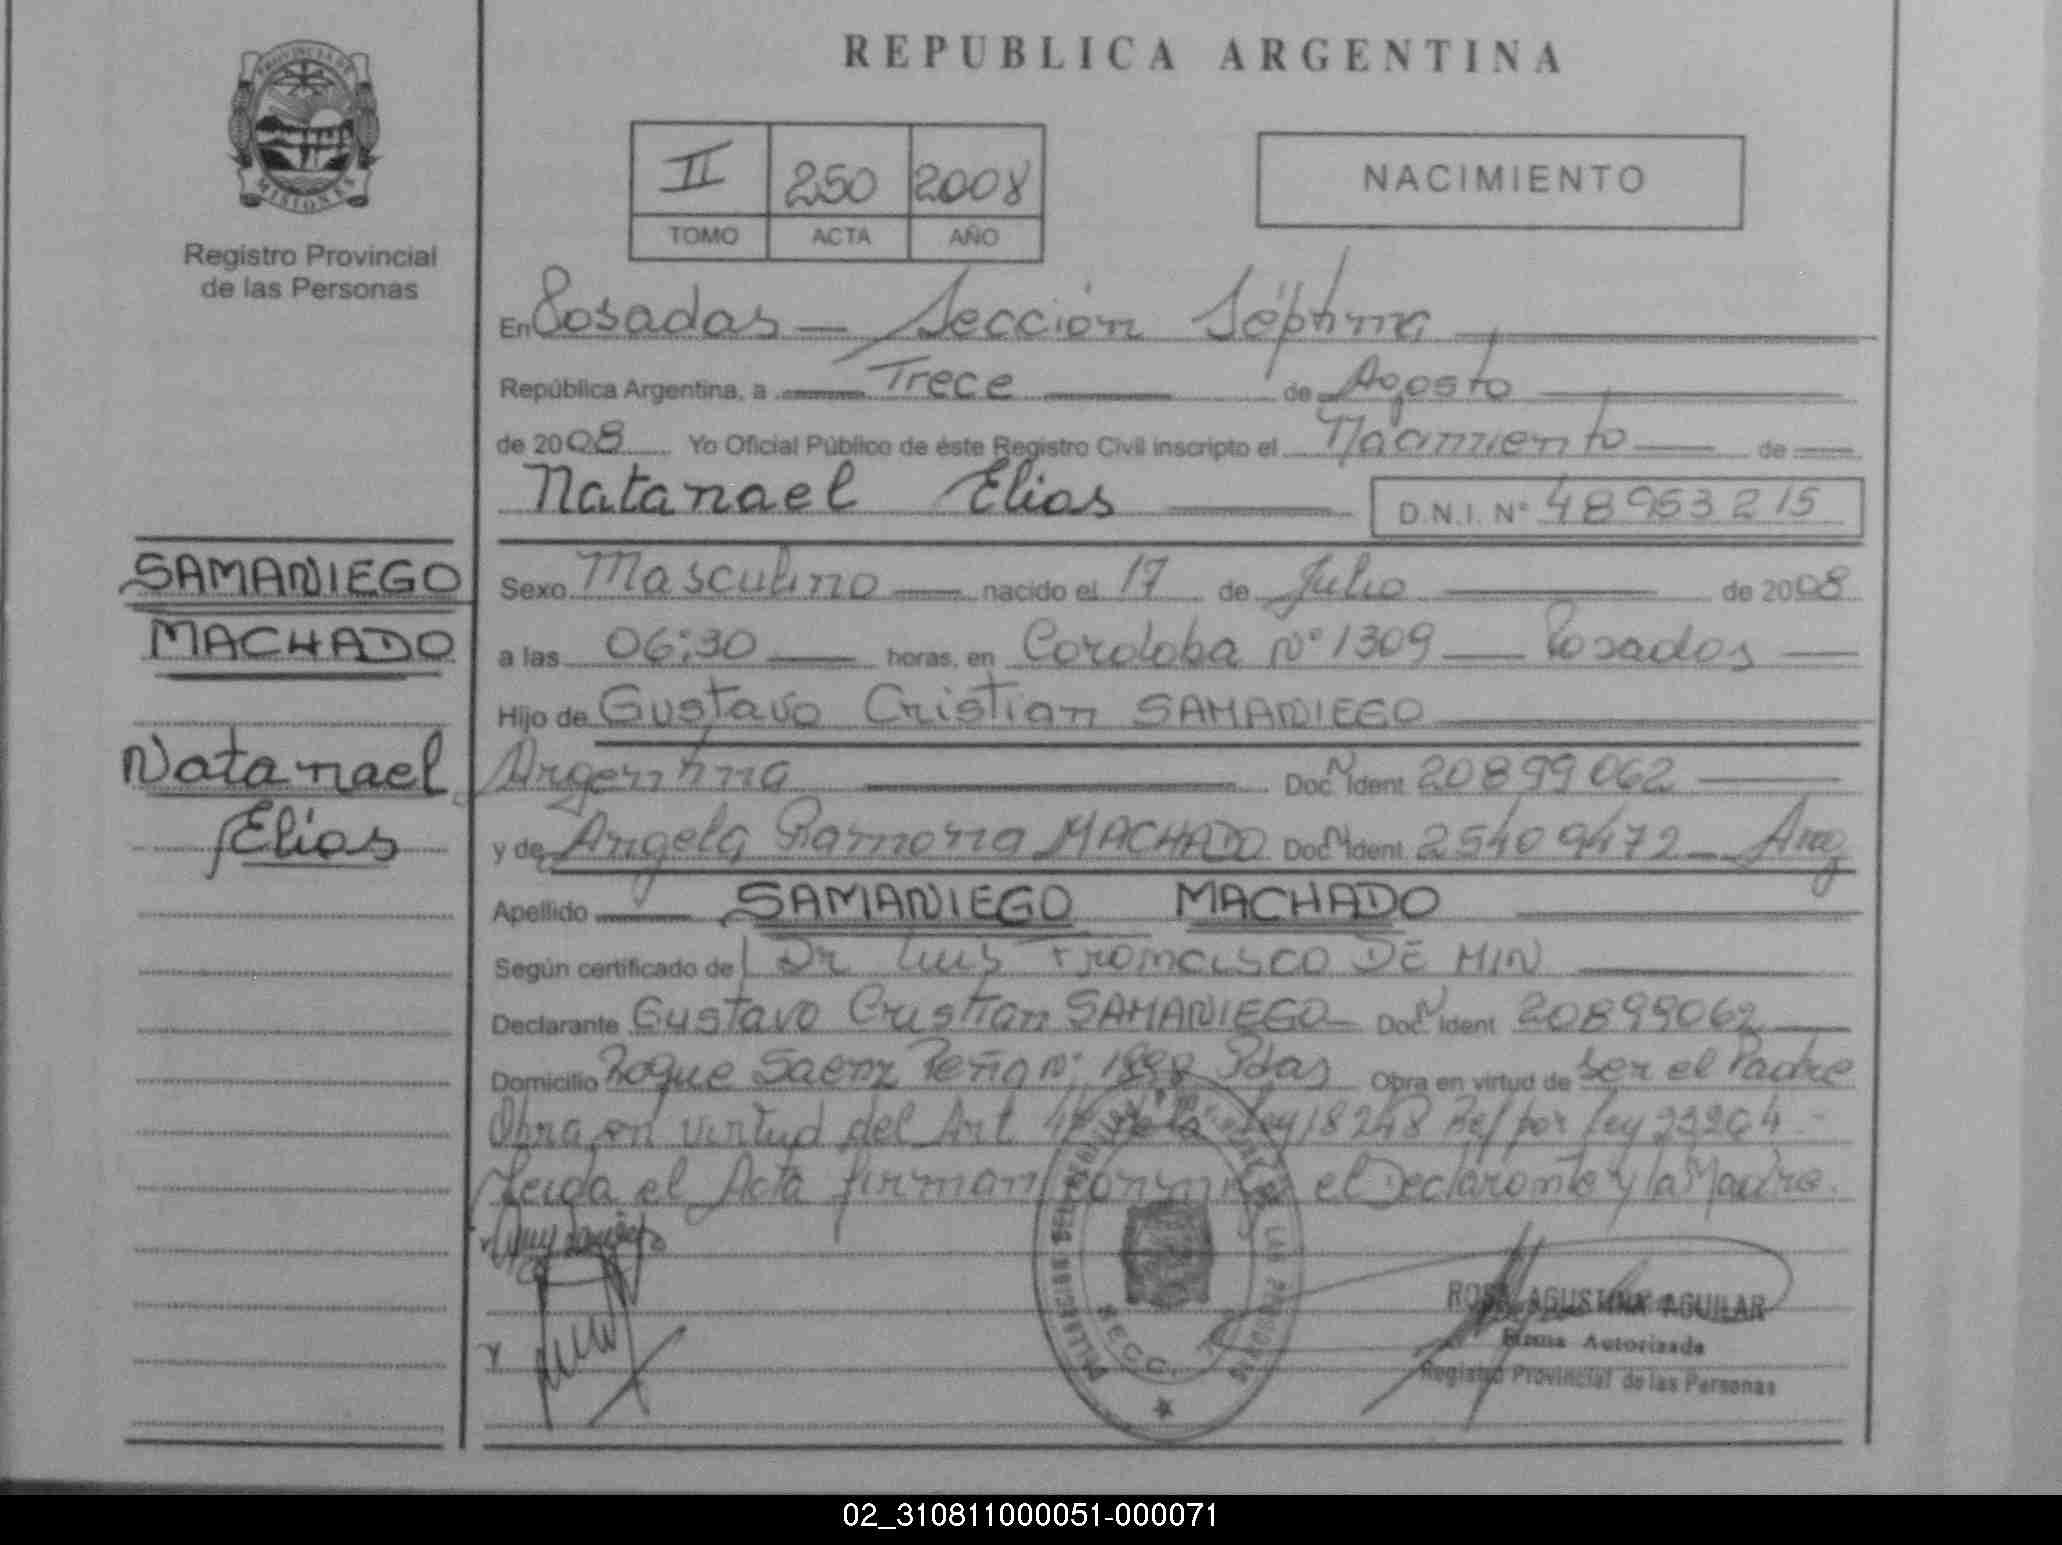 PROVINCIA DE
MISIONES
Registro Provincial
de las Personas
SAMANIEGO
MACHADO
Natanael
Elias
REPUBLICA ARGENTINA
II 250 2008
TOMO ACTA AÑO
NACIMIENTO
En Posadas - Sección Séptima
República Argentina, a Trece de Agosto
de 2008 Yo Oficial Público de éste Registro Civil inscripto el Nacimiento de
Natanael Elias D.N.I. Nº 48953215
Sexo Masculino nacido el 17 de Julio de 2008
a las 06:30 horas, en Cordoba Nº 1309 — Posadas
Hijo de Gustavo Cristian SAMANIEGO
Argentina Doc. N Ident 20899062
y de Angela Ramona MACHADO Doc. N Ident 25409472 - Arg
Apellido SAMANIEGO MACHADO
Según certificado de Dr Luis Francisco DE MIN
Declarante Gustavo Cristian SAMANIEGO Doc. N Ident 20899062
Domicilio Roque Saenz Peña Nº 1898 Pdas Obra en virtud de ser el Padre
Obra en virtud del Art 4º de la Ley 18248 Ref por Ley 23264.-
Leida el Acta firman conmigo el Declarante y la Madre.
ROSA AGUSTINA AGUILAR
Firma Autorizada
Registro Provincial de las Personas
SECC.
02_310811000051-000071